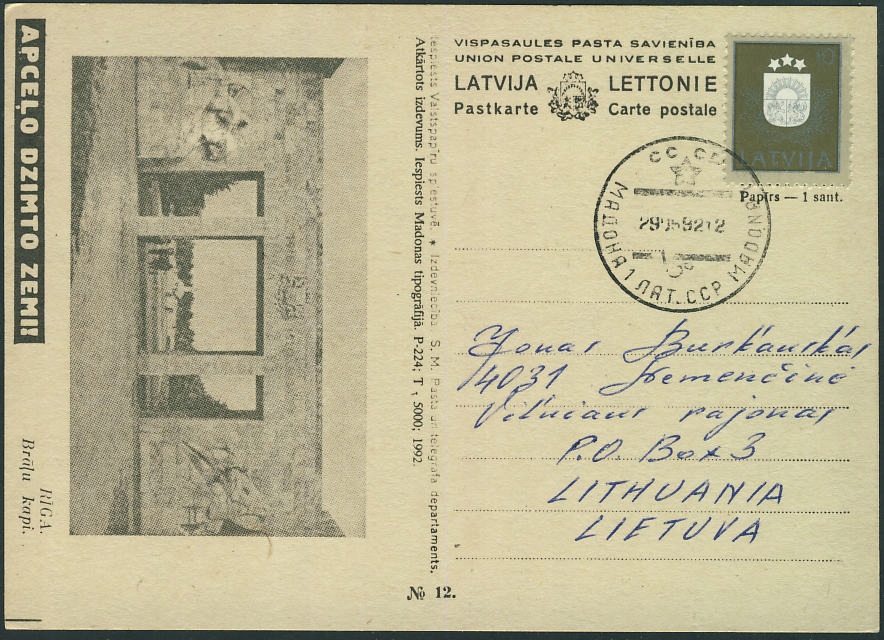 APCEĻO DZIMTO ZEMI!
RĪGA.
Brāļu kapi.
Iespiests Valstspapīru spiestuvē. * Izdevniecība S. M. Pasta un telegrafa departaments.
Atkārtots izdevums. Iespiests Madonas tipogrāfijā. P-224; T, 5000; 1992.
№ 12.
VISPASAULES PASTA SAVIENĪBA
UNION POSTALE UNIVERSELLE
LATVIJA LETTONIE
Pastkarte Carte postale
LATVIJA
Papīrs — 1 sant.
МАДОНА 1 ЛАТ. ССР MADONA
Jonas Burkauskas
4031 Nemenčinė
Vilniaus rajonas
P.O. Box 3
LITHUANIA
LIETUVA